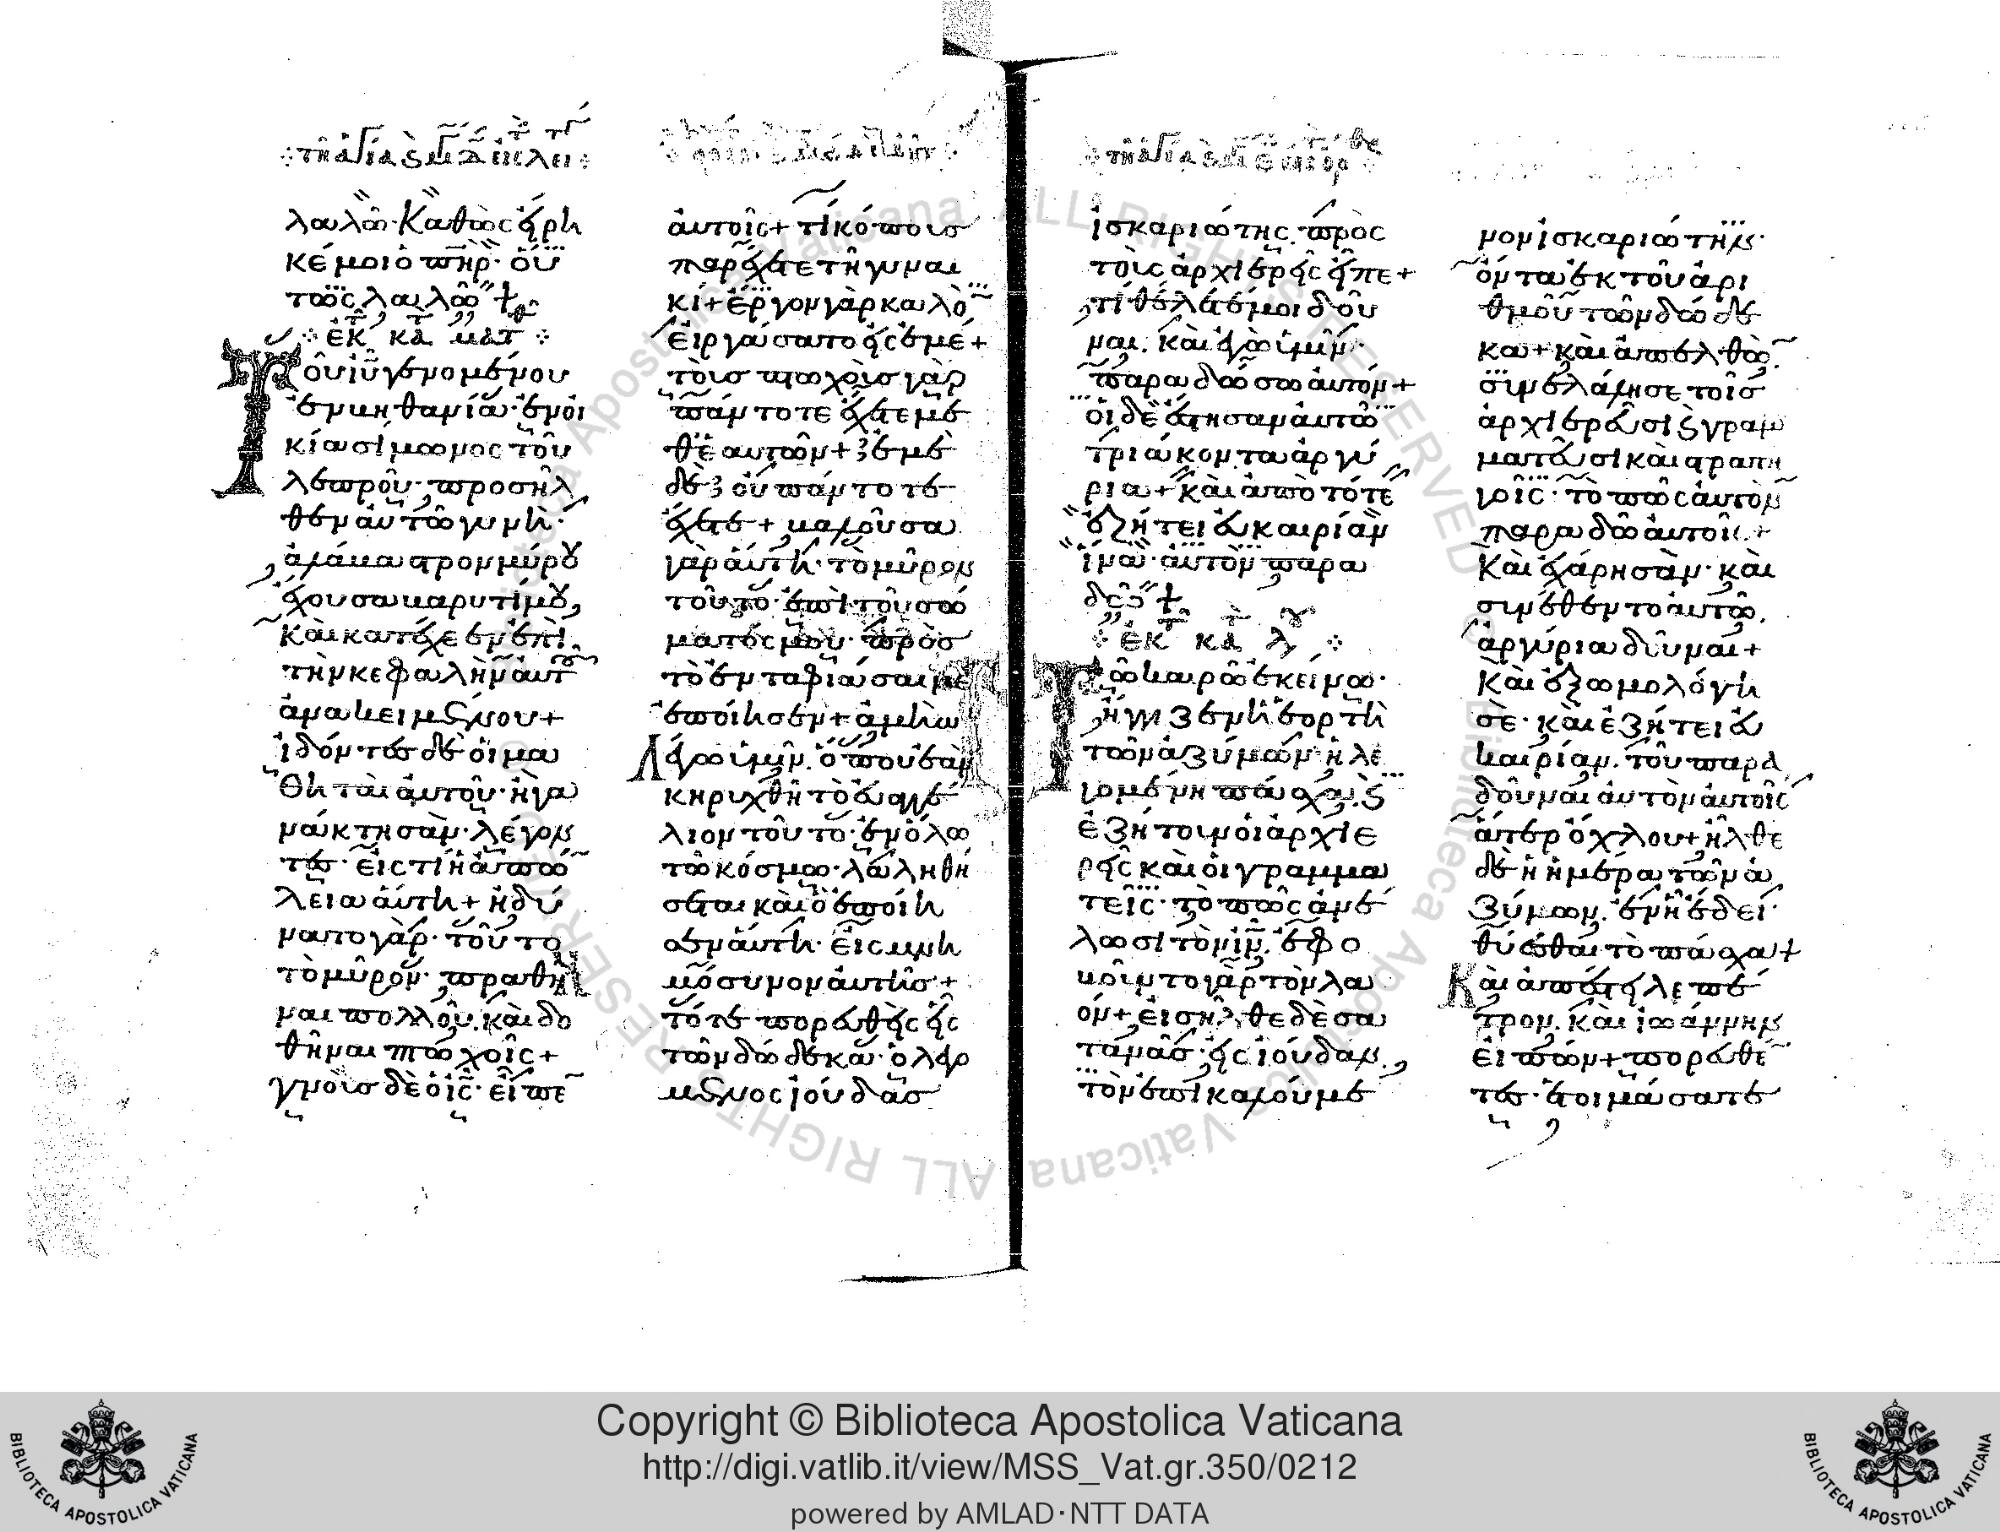 λαλῶ· Καθὼς εἴρη
κέ μοι ὁ πηρ· οὕ
τως λαλῶ +
ἐκ τ κατ ματ
Τοῦ ιυ γενομένου
ἐν βηθανία· ἐν οἰ
κία σίμωνος τοῦ
λεπροῦ· προσῆλ
θεν αὐτῶ γυνὴ·
ἀλάβαστρον μύρου
ἔχουσα βαρυτίμου,
καὶ κατέχεεν ἐπὶ
τὴν κεφαλὴν αὐτ
ἀνακειμένου +
ἰδόντες δὲ οἱ μα
θηταὶ αὐτοῦ· ἠγα
νάκτησαν· λέγον
τες· εἰς τί ἡ ἀπώ
λεια αὕτη + ἠδύ
νατο γὰρ· τοῦτο
τὸ μύρον· πραθῆ
ναι πολλοῦ, καὶ δο
θῆναι πτωχοῖς +
γνοὺς δὲ ὁ ις· εἶπε
αὐτοῖς + τί κόπους
παρέχετε τῆ γυναι
κί + ἔργον γὰρ καλὸ
εἰργάσατο εἰς ἐμέ +
τοὺς πτωχοὺς γὰρ
πάντοτε ἔχετε με
θ' ἑαυτῶν + ἐμὲ
δὲ οὐ πάντοτε
ἔχετε + βαλοῦσα
γὰρ αὕτη· τὸ μύρον
τοῦτο· ἐπὶ τοῦ σώ
ματός μου· πρὸς
τὸ ἐνταφιάσαι με
ἐποίησεν + ἀμὴν
λέγω ὑμῖν. ὅπου ἐὰν
κηρυχθῆ τὸ εὐαγγέ
λιον τοῦτο· ἐν ὅλω
τῶ κόσμω· λαληθή
σεται καὶ ὃ ἐποίη
σεν αὕτη· εἰς μνη
μόσυνον αὐτῆς +
τότε πορευθεὶς εἷς
τῶν δώδεκα· ὁ λεγό
μενος ἰούδας
ἰσκαριώτης, πρὸς
τοὺς ἀρχιερεῖς εἶπε +
τί θέλετέ μοι δοῦ
ναι, καὶ ἐγὼ ὑμῖν·
παραδώσω αὐτόν +
οἱ δὲ ἔστησαν αὐτῶ
τριάκοντα ἀργύ
ρια + καὶ ἀπὸ τότε
ἐζήτει εὐκαιρίαν
ἵνα· αὐτὸν παρα
δῶ +
ἐκ τ κατ λου
Τῶ καιρῶ ἐκείνω·
ἤγγιζεν ἡ ἑορτὴ
τῶν ἀζύμων· ἡ λε
γομένη πάσχα, ϗ
ἐζήτουν οἱ ἀρχιε
ρεῖς καὶ οἱ γραμμα
τεῖς· τὸ πῶς ἀνέ
λωσι τὸν ιν. ἐφο
βοῦντο γὰρ τὸν λα
όν + εἰσῆλθε δὲ σα
τανᾶς· εἰς ἰούδαν,
τὸν ἐπικαλούμε
νον ἰσκαριώτην·
ὄντα ἐκ τοῦ ἀρι
θμοῦ τῶν δώδε
κα + καὶ ἀπελθὼ
συνελάλησε τοῖς
ἀρχιερεῦσι ϗ γραμ
ματεῦσι καὶ στρατη
γοῖς· τὸ πῶς αὐτὸν
παραδῶ αὐτοῖς +
Καὶ ἐχάρησαν· καὶ
συνέθεντο αὐτῶ,
ἀργύρια δοῦναι +
Καὶ ἐξωμολόγη
σε· καὶ ἐζήτει εὐ
καιρίαν, τοῦ παρα
δοῦναι αὐτὸν αὐτοῖς
ἄτερ ὄχλου + ἦλθε
δὲ ἡ ἡμέρα τῶν ἀ
ζύμων, ἐν ἧ ἔδει·
θύεσθαι τὸ πάσχα +
Καὶ ἀπέστειλε πέ
τρον, καὶ ἰωάννην
εἰπών + πορευθέ
τες· ἑτοιμάσατε
Biblioteca Apostolica Vaticana ALL RIGHTS RESERVED
Copyright © Biblioteca Apostolica Vaticana
http://digi.vatlib.it/view/MSS_Vat.gr.350/0212
powered by AMLAD·NTT DATA
BIBLIOTECA APOSTOLICA VATICANA
BIBLIOTECA APOSTOLICA VATICANA